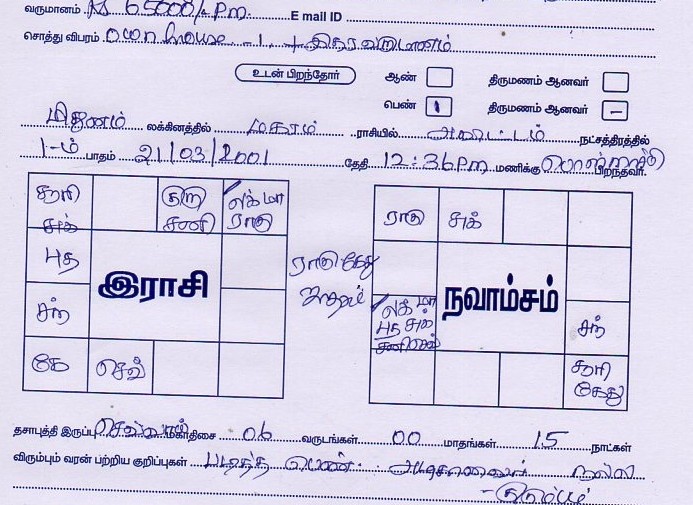 வருமானம் Rs 65000/- P.m. E mail ID
சொத்து விபரம் own house -1, + இதர வருமானம்
உடன் பிறந்தோர் ஆண் திருமணம் ஆனவர்
பெண் 1 திருமணம் ஆனவர் -
மிதுனம் லக்கினத்தில் மகரம் ராசியில் அவிட்டம் நட்சத்திரத்தில்
1-ம் பாதம் 21/03/2001 தேதி 12:36 P.m மணிக்கு பிறந்தவர்
சூரி குரு லக் மா ராகு சுக்
சுக் சனி ராகு
புத ராகு கேது
இராசி ஜாதகம் நவாம்சம்
சந் லக் மா சந்
புத சுக்
சனி செவ்
கே செவ் சூரி
கேது
தசாபுத்தி இருப்பு செவ்வாய் மகாதிசை 06 வருடங்கள் 00 மாதங்கள் 15 நாட்கள்
விரும்பும் வரன் பற்றிய குறிப்புகள் படித்த பெண். நல்ல
- குடும்பம்